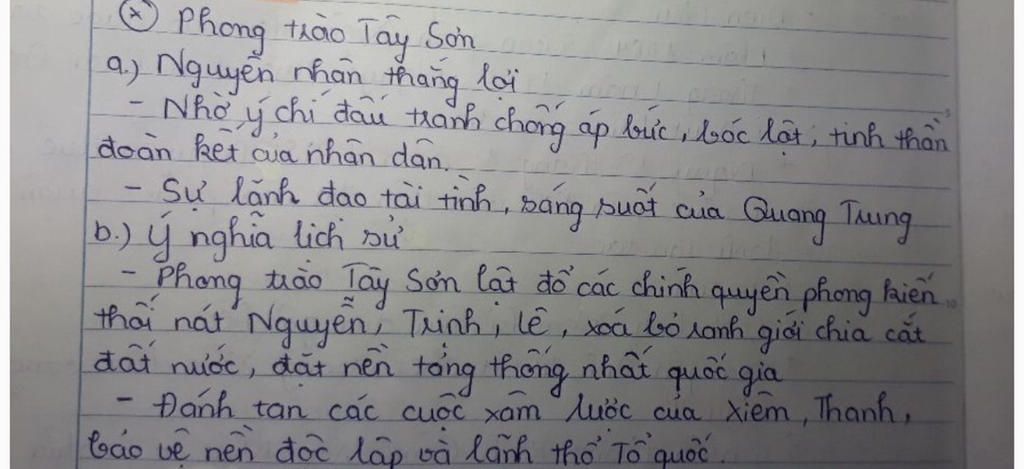 (x) Phong trào Tây Sơn
a.) Nguyên nhân thắng lợi
- Nhờ ý chí đấu tranh chống áp bức, bóc lột, tinh thần
đoàn kết của nhân dân.
- Sự lãnh đạo tài tình, sáng suốt của Quang Trung
b.) Ý nghĩa lịch sử
- Phong trào Tây Sơn lật đổ các chính quyền phong kiến
thối nát Nguyễn, Trịnh, Lê, xoá bỏ ranh giới chia cắt
đất nước, đặt nền tảng thống nhất quốc gia
- Đánh tan các cuộc xâm lược của Xiêm, Thanh,
bảo vệ nền độc lập và lãnh thổ Tổ quốc.